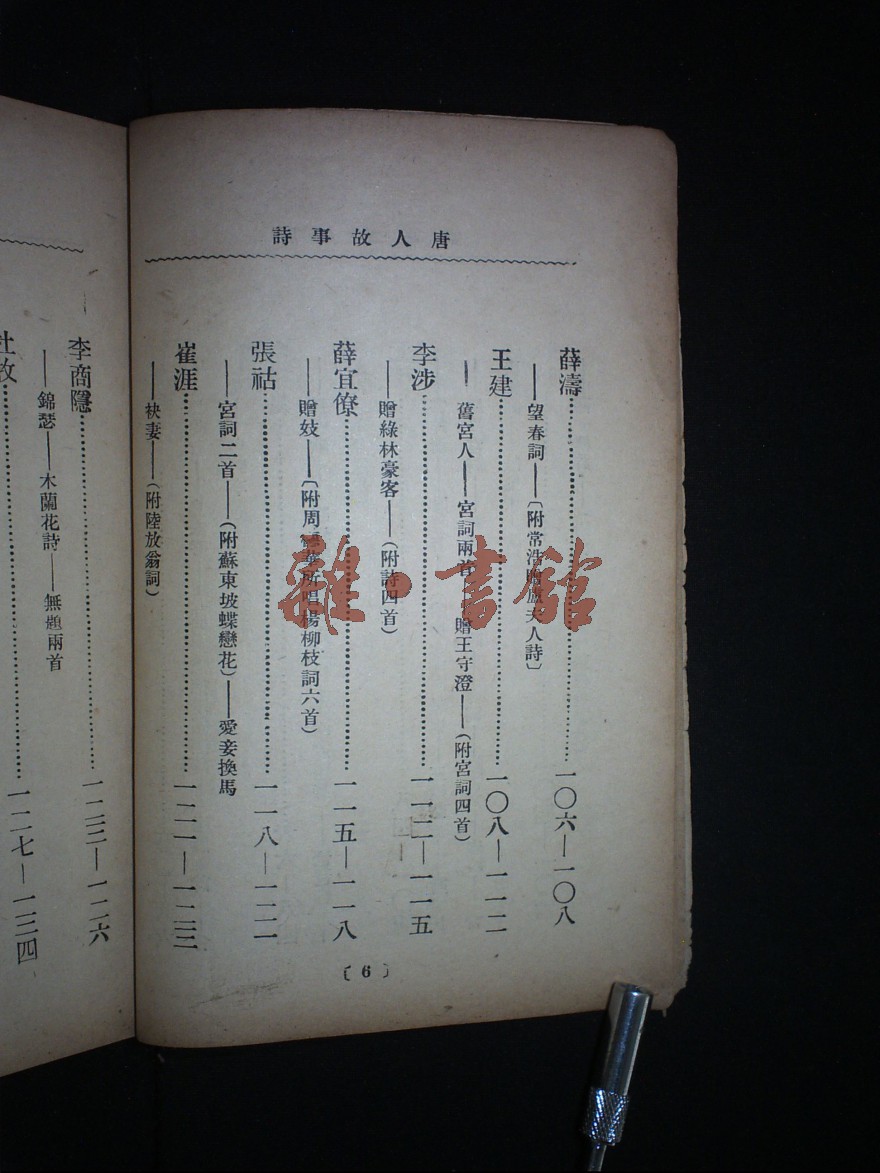 唐人故事詩
薛濤
——望春詞——〔附常浩贈盧夫人詩〕
一〇六—一〇八
王建
——舊宮人——宮詞兩首 贈王守澄——(附宮詞四首)
一〇八—一一二
李涉
——贈綠林豪客——(附詩四首)
一一二—一一五
薛宜僚
——贈妓——〔附周 所唱楊柳枝詞六首)
一一五—一一八
張祜
——宮詞二首——(附蘇東坡蝶戀花)——愛妾換馬
一一八—一二一
崔涯
——袂妻——(附陸放翁詞)
一二一—一二三
〔6〕
李商隱
——錦瑟——木蘭花詩——無題兩首
一二三—一二六
杜牧
一二七—一三四
雜·書館